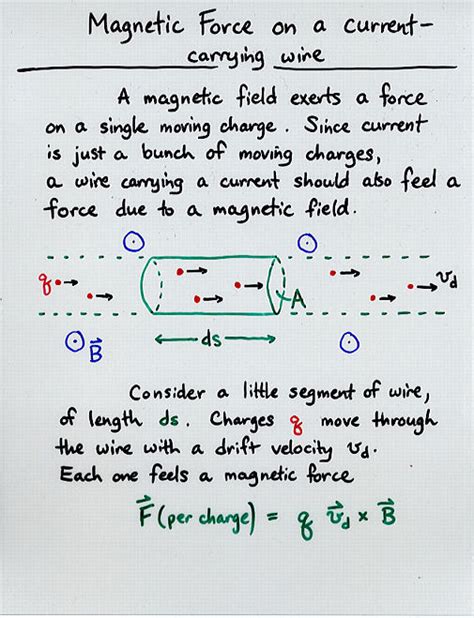 Magnetic Force on a current-
carrying wire
A magnetic field exerts a force
on a single moving charge. Since current
is just a bunch of moving charges,
a wire carrying a current should also feel a
force due to a magnetic field.
q
v_d
A
B⃗
ds
Consider a little segment of wire,
of length ds. Charges q move through
the wire with a drift velocity v_d.
Each one feels a magnetic force
F⃗ (per charge) = q v⃗_d × B⃗